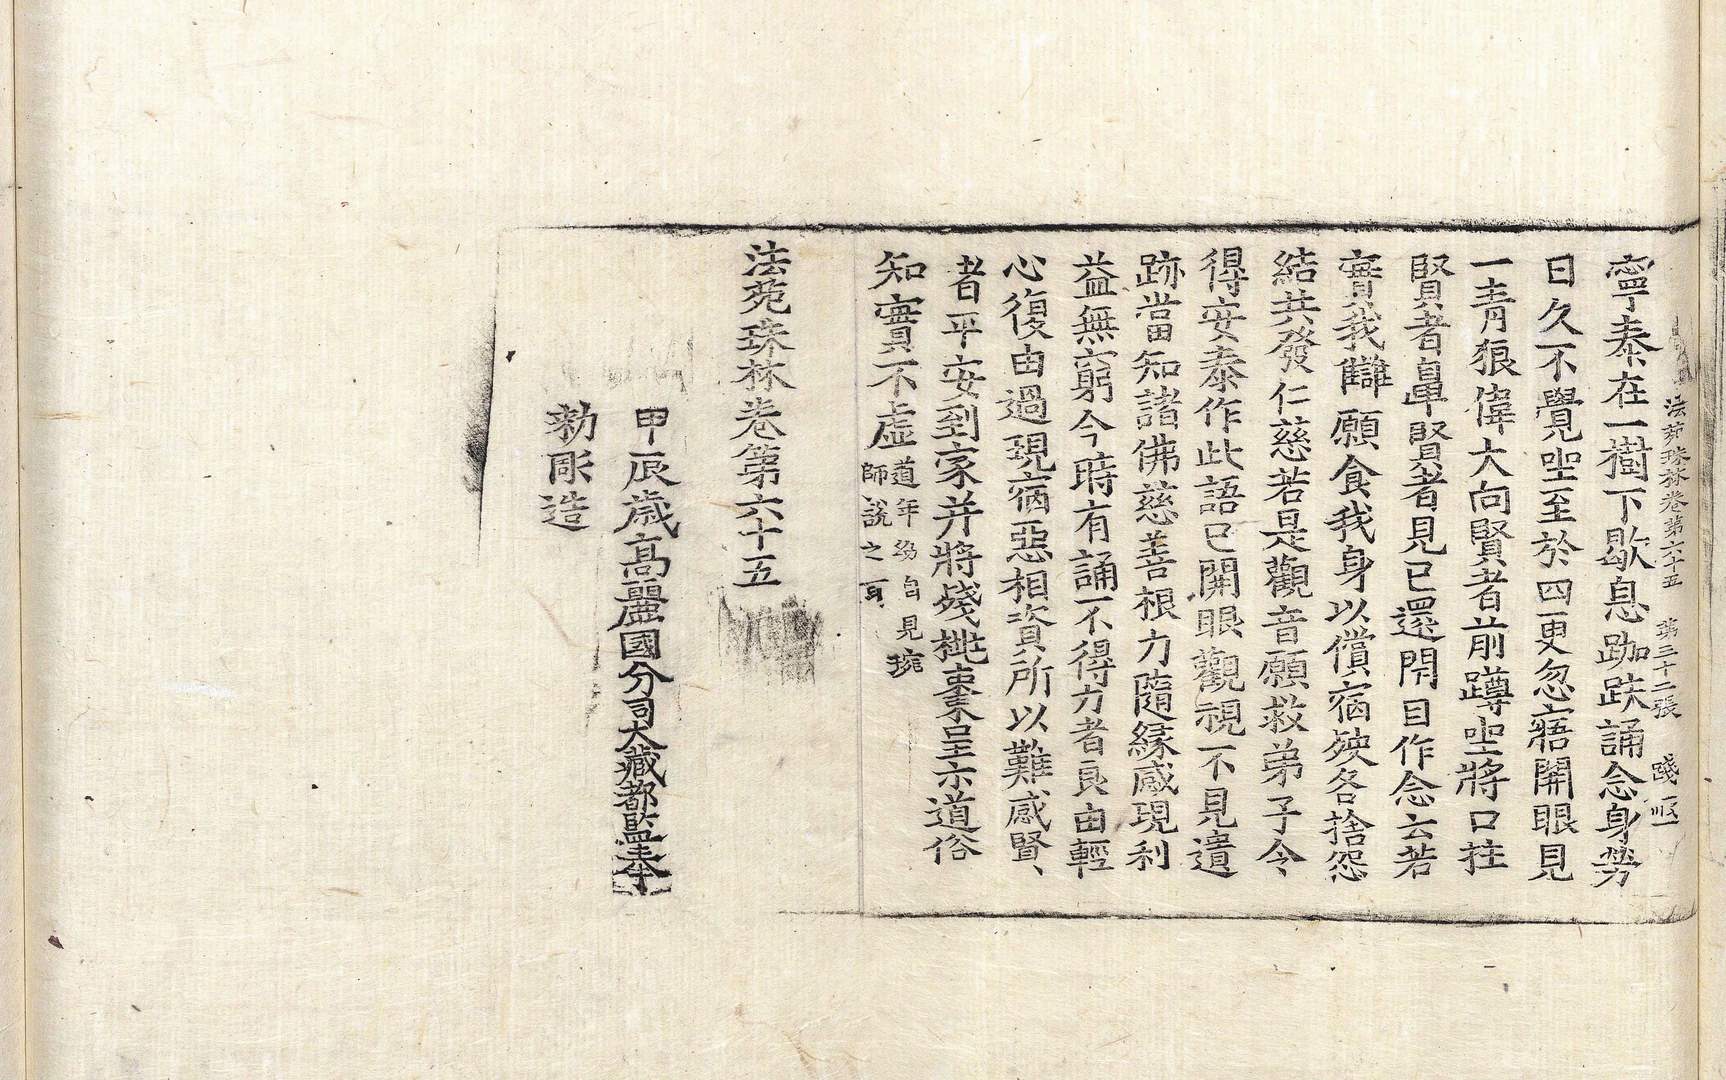 法苑珠林卷第六十五 第三十二張 踐 順
寧泰在一樹下歇息跏趺誦念身勞
日久不覺坐至於四更忽寤開眼見
一青狼偉大向賢者前蹲坐將口拄
賢者鼻賢者見已還閇目作念云若
實我讎願食我身以償宿殃各捨怨
結共發仁慈若是觀音願救弟子今
得安泰作此語已開眼觀視不見遺
跡當知諸佛慈善根力隨緣感現利
益無窮今時有誦不得力者良由輕
心復由過現宿惡相資所以難感賢
者平安到家并將殘棗呈示道俗
知實不虛道年幼自見琬
師說之耳
法苑珠林卷第六十五
甲辰歲高麗國分司大藏都監奉
勅彫造